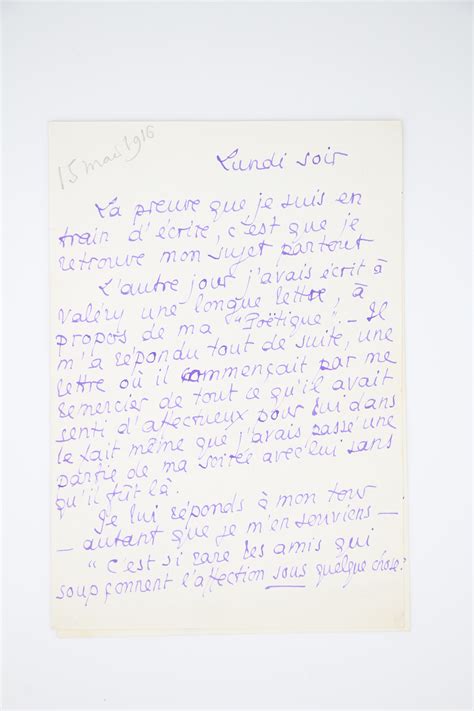 15 mai 1916
Lundi soir
La preuve que je suis en
train d'écrire, c'est que je
retrouve mon sujet partout
L'autre jour j'avais écrit à
Valéry une longue lettre, à
propos de ma "Poëtique". – Il
m'a répondu tout de suite, une
lettre où il commençait par me
remercier de tout ce qu'il avait
senti d'affectueux pour lui dans
le fait même que j'avais passé une
partie de ma soirée avec lui sans
qu'il fût là.
Je lui réponds à mon tour
– autant que je m'en souviens –
" C'est si rare les amis qui
soupçonnent l'affection sous quelque chose!